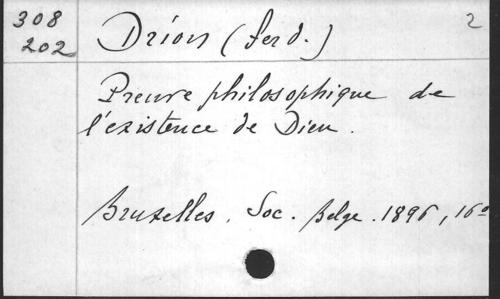 308 Drion (Ferd.) 2
202
Preuve philosophique de
l'existence de Dieu.
Bruxelles. Soc. Belge. 1896, 16º